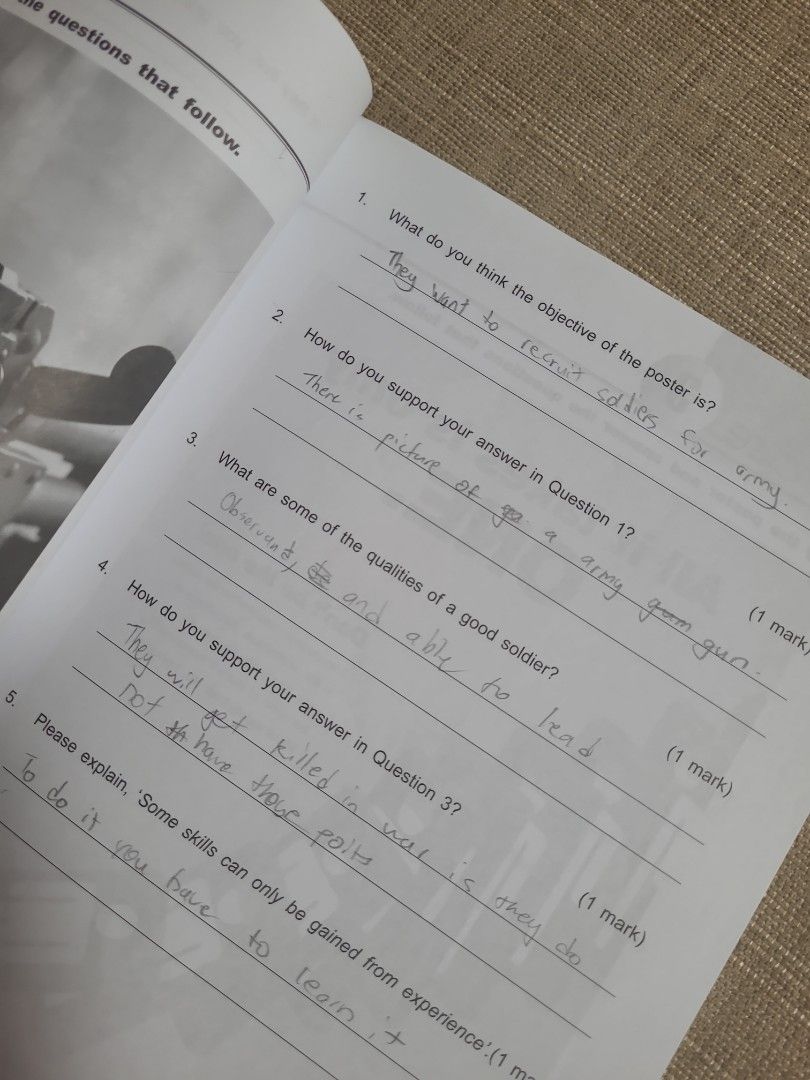 the questions that follow.
1. What do you think the objective of the poster is?
They want to recruit soldiers for army.
(1 mark)
2. How do you support your answer in Question 1?
There is picture of a army gun.
(1 mark)
3. What are some of the qualities of a good soldier?
Observant, and able to lead
(1 mark)
4. How do you support your answer in Question 3?
They will get killed in war is they do
not have those poits
5. Please explain, 'Some skills can only be gained from experience'. (1 ma
To do it you have to learn it